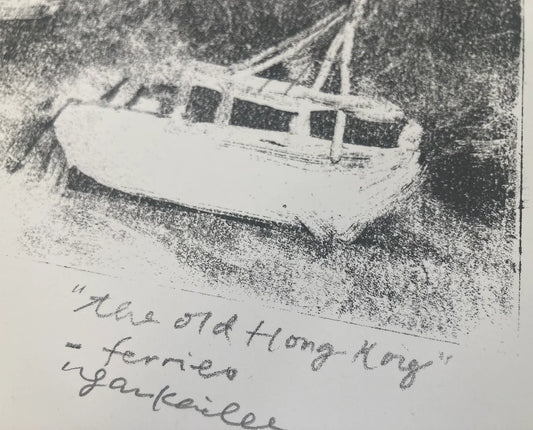 "the old Hong Kong"
- ferries
ngankeilee